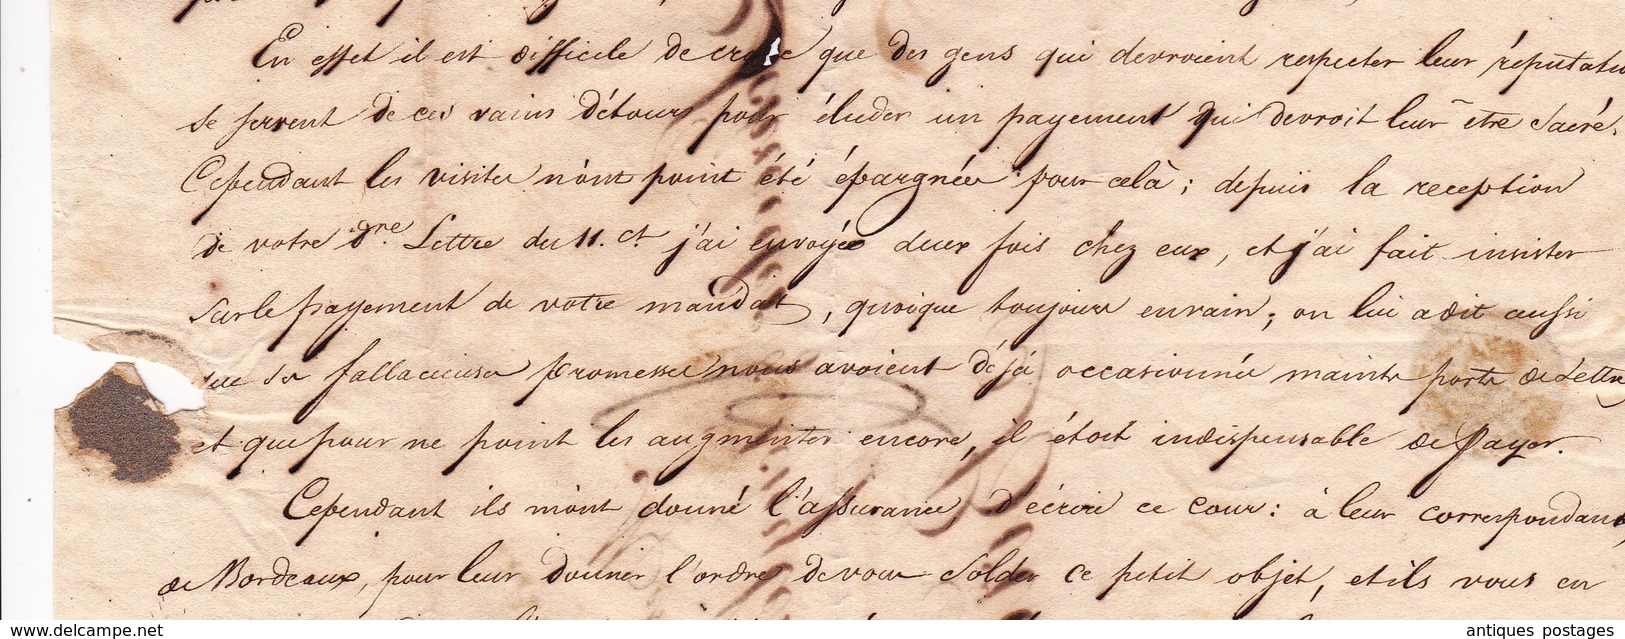 En effet il est difficile de croire que des gens qui devroient respecter leur réputatio
se servent de ces vains détours pour éluder un payement qui devroit leur être sacré.
Cependant les visites n'ont point été épargnées pour celà; depuis la reception
de votre dre. Lettre du 11. ct. j'ai envoyée deux fois chez eux, et j'ai fait insister
sur le payement de votre mandat, quoique toujours en vain; on lui a dit aussi
que ses fallacieuses promesses nous avoient déjà occasionnés maints ports de Lettres
et que pour ne point les augmenter encore, il étoit indispensable de Payer.
Cependant ils m'ont donné l'assurance d'écrire ce cour: à leur correspondant,
de Bordeaux, pour leur donner l'ordre de vous Solder ce petit objet, et ils vous en
www.delcampe.net
antiques postages